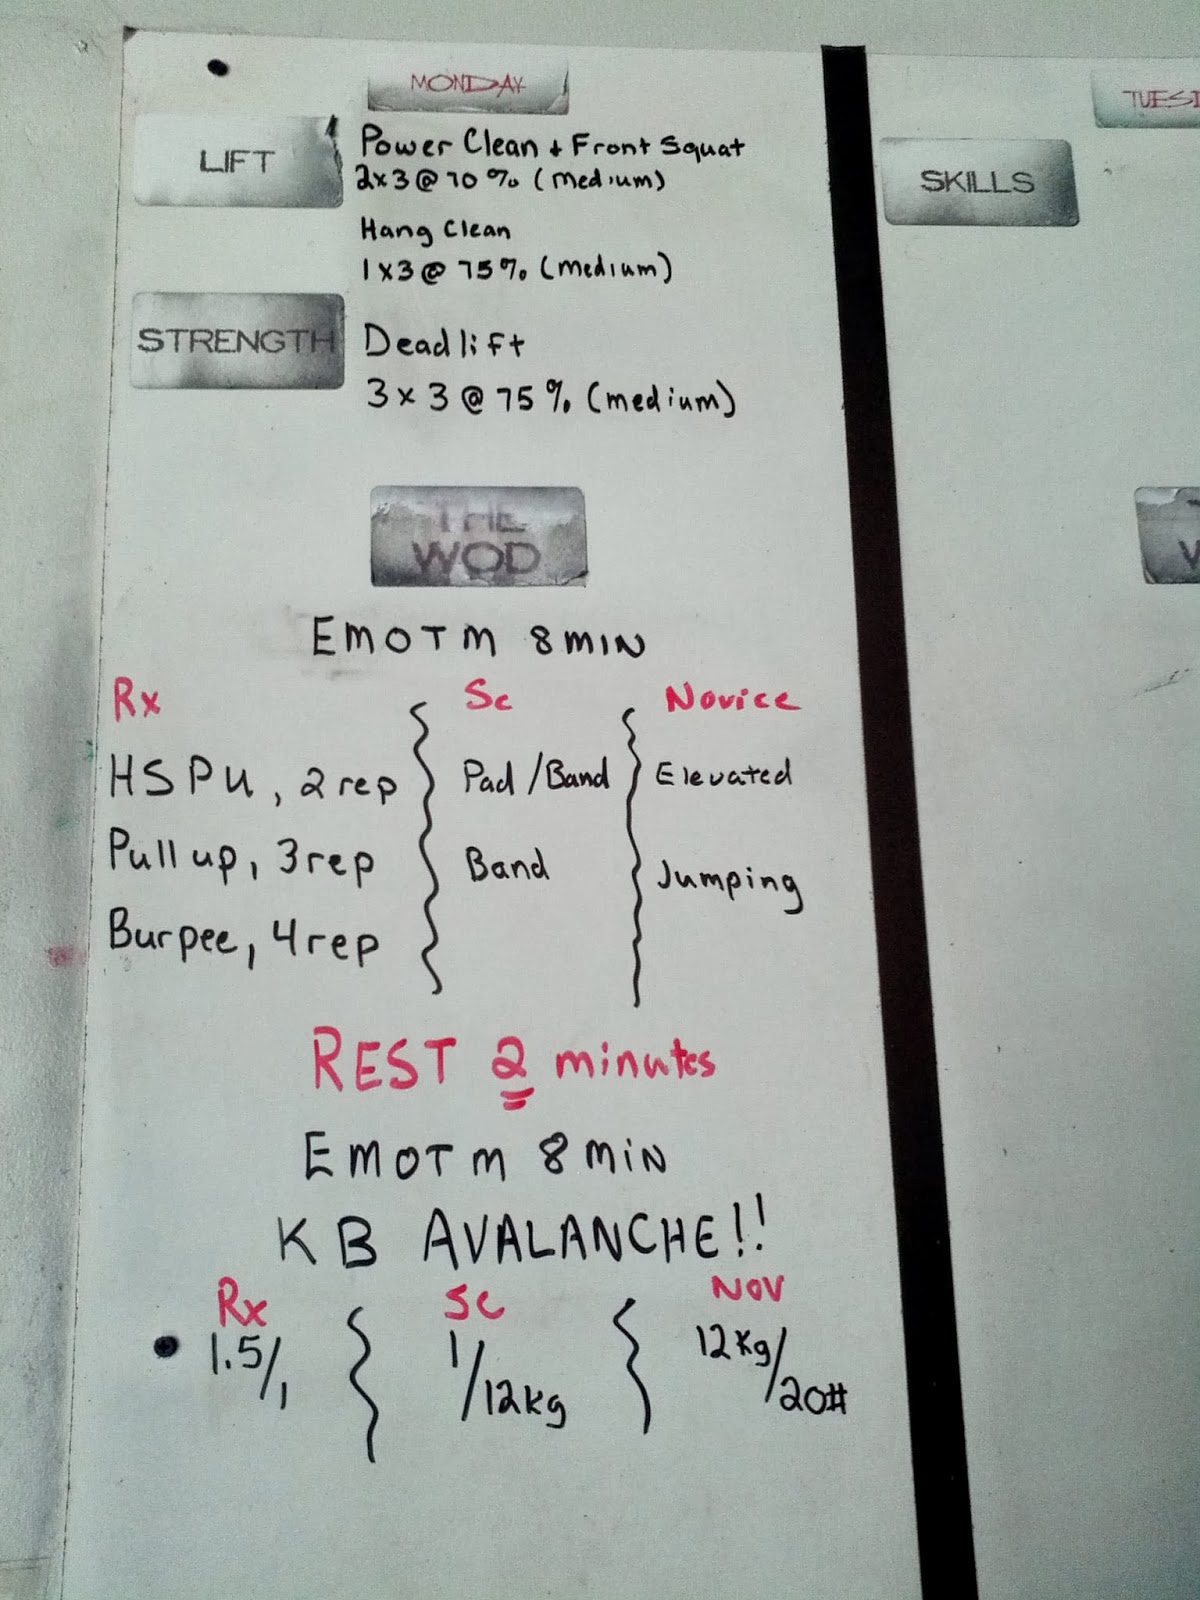 MONDAY
LIFT
Power Clean + Front Squat
2x3 @ 70% (medium)
Hang Clean
1x3 @ 75% (medium)
STRENGTH
Deadlift
3x3 @ 75% (medium)
THE
WOD
EMOTM 8 MIN
Rx Sc Novice
HSPU, 2 rep Pad/Band Elevated
Pull up, 3 rep Band Jumping
Burpee, 4 rep
REST 2 minutes
EMOTM 8 MIN
KB AVALANCHE!!
Rx SC NOV
1.5/1 1/12kg 12kg/20#
TUES
SKILLS